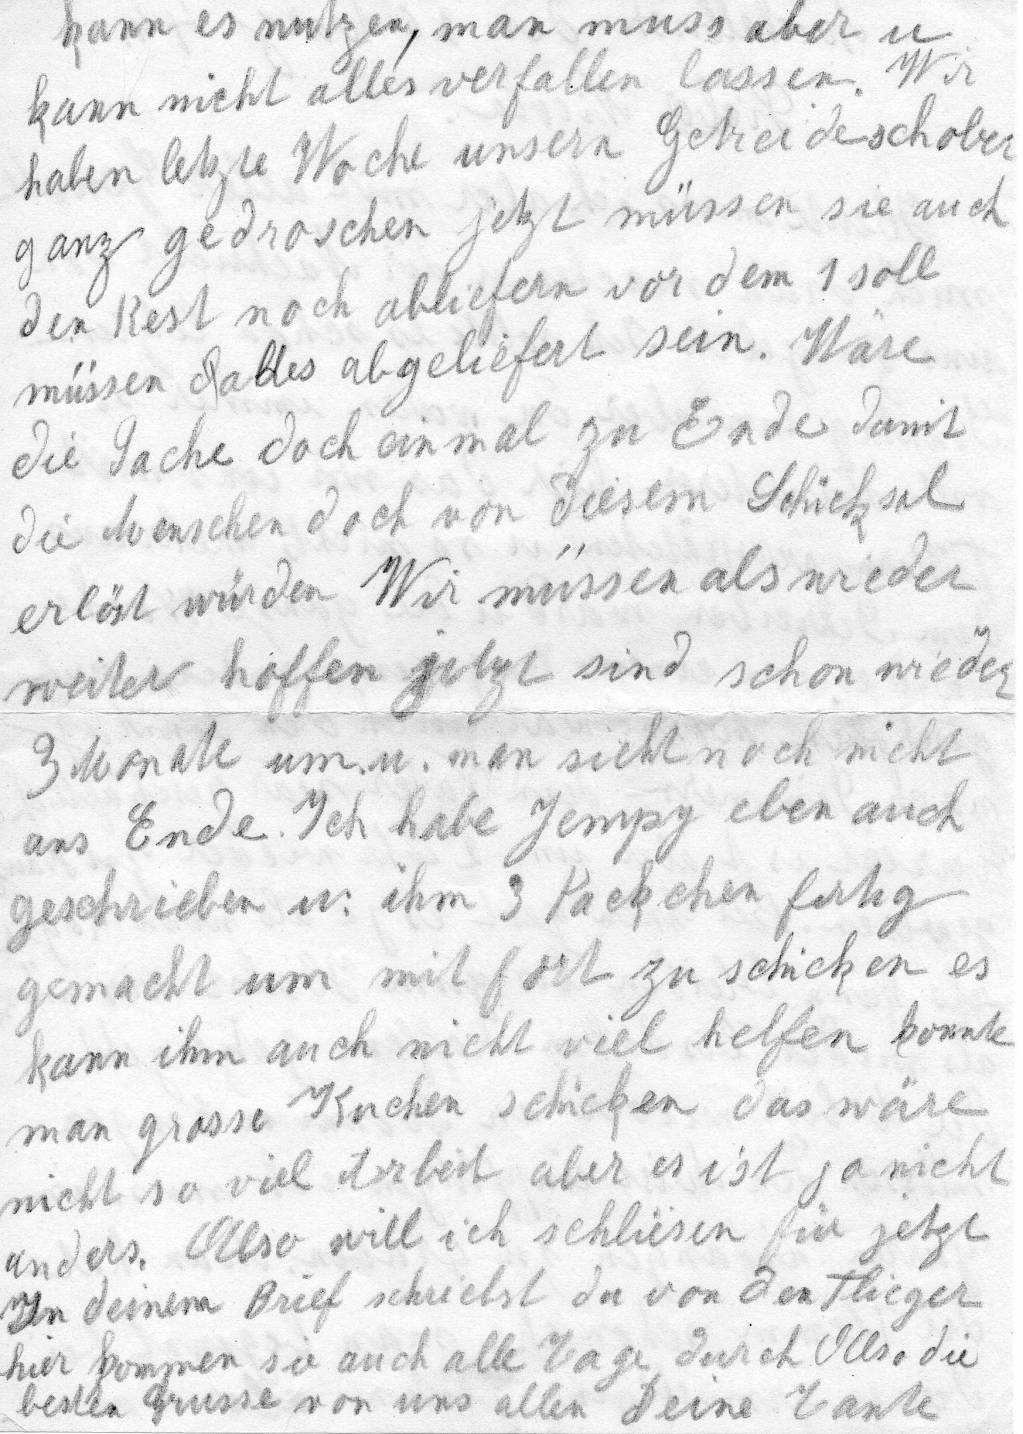 kann es nutzen, man muss aber u
kann nicht alles verfallen lassen. Wir
haben letzte Woche unsern Getreideschober
ganz gedroschen jetzt müssen sie auch
den Rest noch abliefern vor dem 1 soll
müssen alles abgeliefert sein. Wäre
die Sache doch einmal zu Ende damit
die Menschen doch von diesem Schicksal
erlöst würden Wir müssen als wieder
weiter hoffen jetzt sind schon wieder
3 Monate um. u. man sieht noch nicht
ans Ende. Ich habe Jempy eben auch
geschrieben u: ihm 3 Päckchen fertig
gemacht um mit fort zu schicken es
kann ihm auch nicht viel helfen konnte
man grosse Kuchen schicken das wäre
nicht so viel Arbeit aber es ist ja nicht
anders. Also will ich schliesen für jetzt
In deinem Brief schriebst du von den Flieger
hier kommen sie auch alle Tage durch Also die
besten Grusse von uns allen Deine Tante